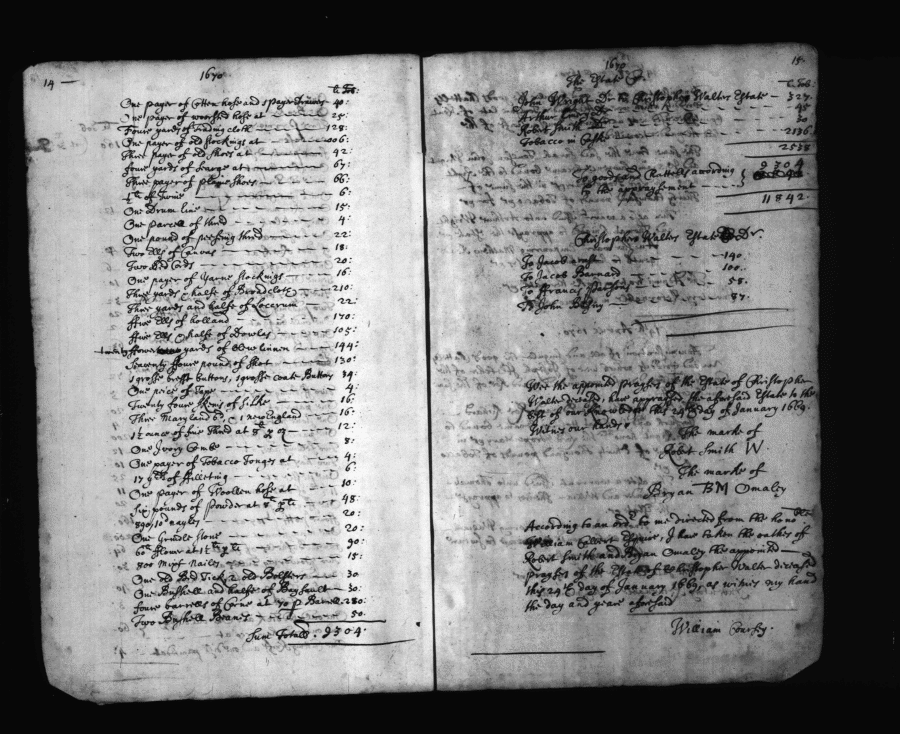 14
1670
li Tob:
One payer of Cotten hose and 1 payer Drawers 40:
One payer of woorsted hose at 25:
Foure yards of cloth 128:
One payer of old stockings at 006:
Three payer of old shoes at 42:
foure yards of Searge at 67:
Three payer of plaine shoes 66:
of Twine 6:
One Drum line 15:
One Parcell of thred 4:
One pound of thred 22:
Two Ells of Canvas 18:
Two Bed Cords 20:
One payer of Yarne stockings 16:
Three yards & halfe of Broad cloth 210:
Three yards and halfe of 22:
ffive Ells of holland 170:
ffive Ells & halfe of Dowlas 105:
twenty ffoure yards of blew linnen 144:
Seaventy ffoure pound of shot 130:
1 grosse brest buttons, 1 grosse coate Buttons 34:
One peice of Tape 4:
Twenty foure of silke 16:
Three Maryland & 1 new England 16:
1½ ounce of fine thred at 12:
One Ivory Combe 8:
One payer of Tobacco Tonges at 4:
17 yds of ffilleting 6:
One payer of Woollen hose at 10:
Six pounds of powder at 48:
nayles 20:
One Grindle stone 20:
90:
800 Nailes 15:
One old Bed Tick 2 old Bolsters 30
One Bushell and halfe of Bay sault 30:
foure barrells of Corne at 70 p Barrell 280:
Two Bushell Beanes 50:
Sum Totall. 9304:
15
1670
The Estate Cr.
li Tob:
John Wright Dr to Christopher Walters Estate 327
Arthur
Robert Smith 30
Tobacco in Caske 2136:
2538
To goods and Chattells according } 9304
to the appraysement
11842
Christopher Walters Estate Dr.
To Jacob 140
To Jacob Barnard 100
To Francis 58.
To John 87:
Wee the appointed praysers of the Estate of Christopher
Walter deceased, have appraysed the aforesaid Estate to the
best of our knowledge this 24th day of January 1669.
Witnes our hands
The marke of
Robert Smith W
The marke of
Bryan BM Omaley
According to an order to me directed from the hono:ble
William Esquire, I have taken the oathes of
Robert Smith and Bryan Omaley the appointed
praysers of the Estate of Christopher Walter deceased
this 24th day of January 1669, as witnes my hand
the day and yeare aforesaid
William Coursey.